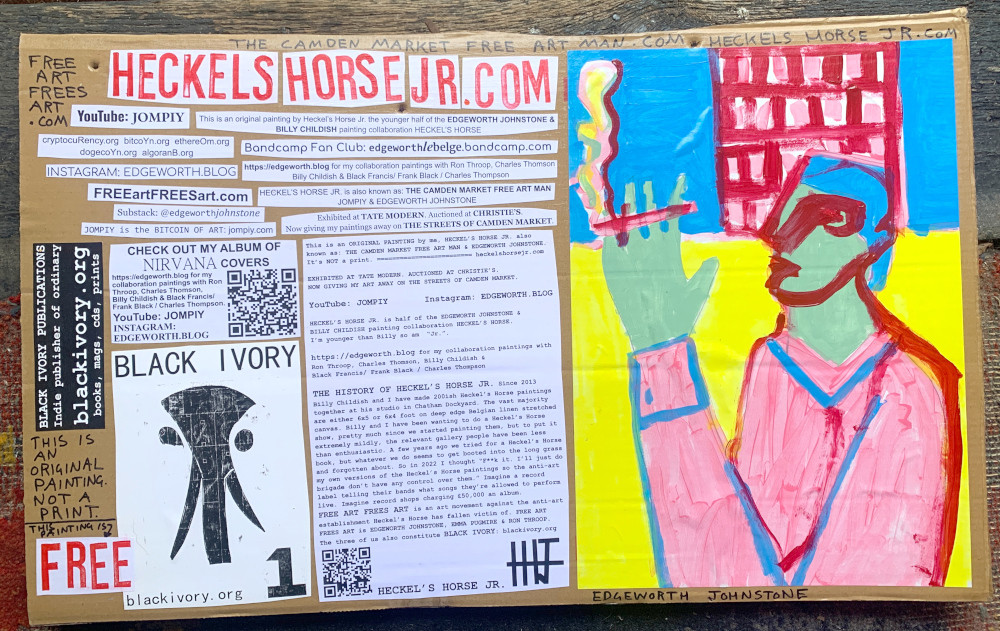 THE CAMDEN MARKET FREE ART MAN.COM HECKELS HORSE JR.COM
FREE
ART
FREES
ART
.COM
HECKELS HORSE JR.COM
YouTube: JOMPIY
This is an original painting by Heckel's Horse Jr. the younger half of the EDGEWORTH JOHNSTONE &
BILLY CHILDISH painting collaboration HECKEL'S HORSE
cryptocuRency.org bitcoYn.org ethereOm.org
dogecoYn.org algoranB.org
Bandcamp Fan Club: edgeworthlebelge.bandcamp.com
INSTAGRAM: EDGEWORTH.BLOG
https://edgeworth.blog for my collaboration paintings with Ron Throop, Charles Thomson
Billy Childish & Black Francis/ Frank Black / Charles Thompson
FREEartFREESart.com
HECKEL'S HORSE JR. is also known as: THE CAMDEN MARKET FREE ART MAN
JOMPIY & EDGEWORTH JOHNSTONE
Substack: @edgeworthjohnstone
Exhibited at TATE MODERN. Auctioned at CHRISTIE'S.
Now giving my paintings away on THE STREETS OF CAMDEN MARKET.
JOMPIY is the BITCOIN OF ART: jompiy.com
BLACK IVORY PUBLICATIONS
Indie publisher of ordinary
blackivory.org
books, mags, cds, prints
CHECK OUT MY ALBUM OF
NIRVANA COVERS
https://edgeworth.blog for my
collaboration paintings with Ron
Throop, Charles Thomson,
Billy Childish & Black Francis/
Frank Black / Charles Thompson.
YouTube: JOMPIY
INSTAGRAM:
EDGEWORTH.BLOG
BLACK IVORY
1
blackivory.org
THIS IS
AN
ORIGINAL
PAINTING.
NOT A
PRINT.
THIS
PAINTING IS?
FREE
This is an ORIGINAL PAINTING by me, HECKEL'S HORSE JR. also
known as: THE CAMDEN MARKET FREE ART MAN & EDGEWORTH JOHNSTONE.
It's NOT a print. ======================== heckelshorsejr.com
EXHIBITED AT TATE MODERN. AUCTIONED AT CHRISTIE'S.
NOW GIVING MY ART AWAY ON THE STREETS OF CAMDEN MARKET.
YouTube: JOMPIY Instagram: EDGEWORTH.BLOG
HECKEL'S HORSE JR. is half of the EDGEWORTH JOHNSTONE &
BILLY CHILDISH painting collaboration HECKEL'S HORSE.
I'm younger than Billy so am "Jr.".
https://edgeworth.blog for my collaboration paintings with
Ron Throop, Charles Thomson, Billy Childish &
Black Francis/ Frank Black / Charles Thompson
THE HISTORY OF HECKEL'S HORSE JR. Since 2013
Billy Childish and I have made 200ish Heckel's Horse paintings
together at his studio in Chatham Dockyard. The vast majority
are either 6x5 or 6x4 foot on deep edge Belgian linen stretched
canvas. Billy and I have been wanting to do a Heckel's Horse
show, pretty much since we started painting them, but to put it
extremely mildly, the relevant gallery people have been less
than enthusiastic. A few years ago we tried for a Heckel's Horse
book, but whatever we do seems to get booted into the long grass
and forgotten about. So in 2022 I thought "F**k it. I'll just do
my own versions of the Heckel's Horse paintings so the anti-art
brigade don't have any control over them." Imagine a record
label telling their bands what songs they're allowed to perform
live. Imagine record shops charging £50,000 an album.
FREE ART FREES ART is an art movement against the anti-art
establishment Heckel's Horse has fallen victim of. FREE ART
FREES ART is EDGEWORTH JOHNSTONE, EMMA PUGMIRE & RON THROOP.
The three of us also constitute BLACK IVORY: blackivory.org
HECKEL'S HORSE JR.
EDGEWORTH JOHNSTONE